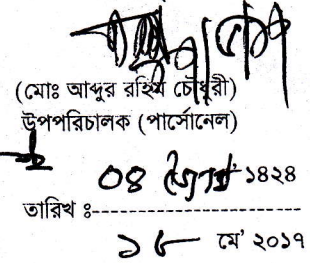 (মোঃ আব্দুর রহিম চৌধুরী)
উপপরিচালক (পার্সোনেল)
০৪ জ্যৈষ্ঠ' ১৪২৪
তারিখ ঃ--------------------
১৮ মে' ২০১৭